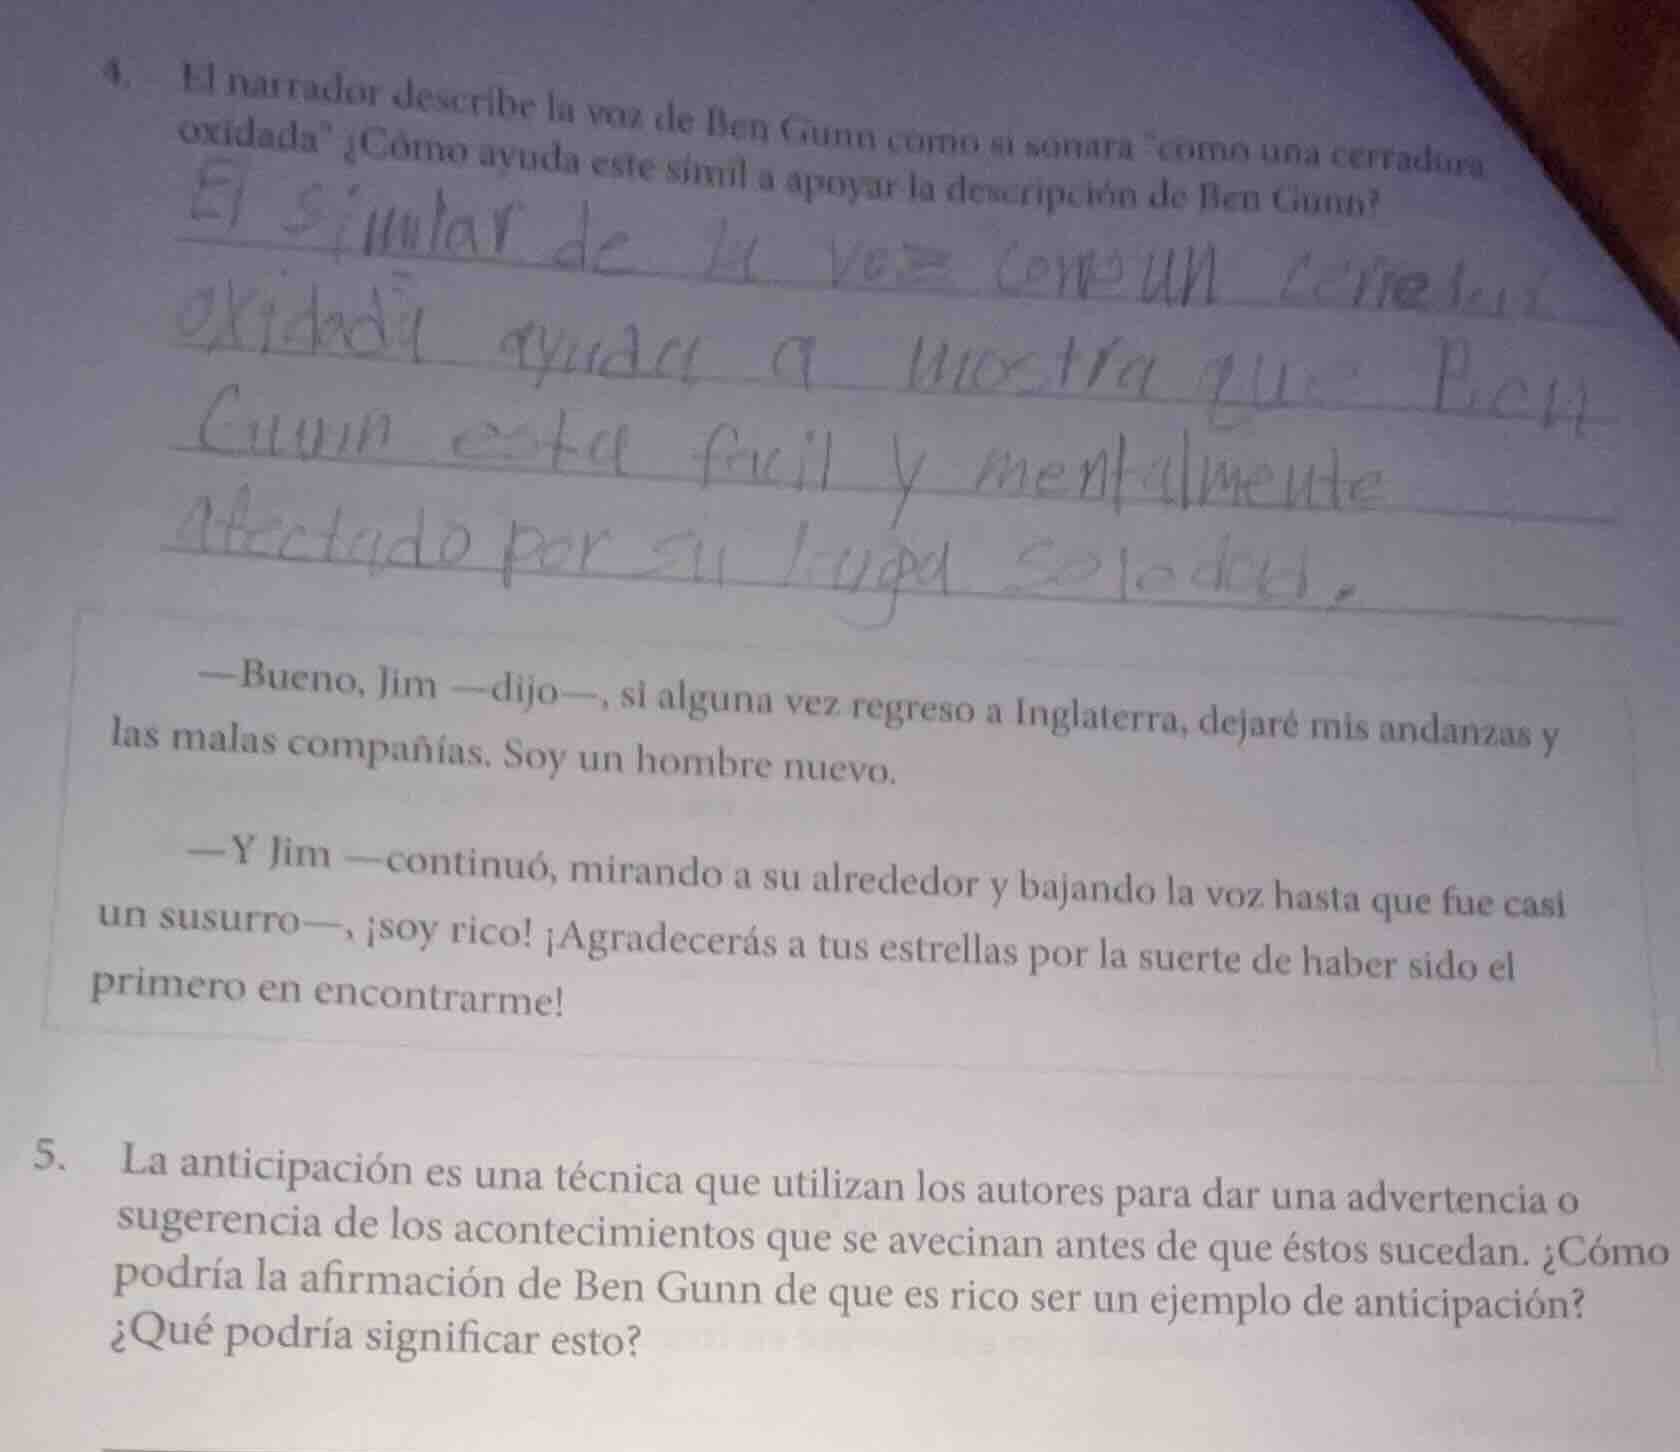 4. El narrador describe la voz de Ben Gunn como si sonara "como una cerradura
oxidada" ¿Cómo ayuda este símil a apoyar la descripción de Ben Gunn?
El simular de la voz como un
oxidada ayuda a mostra que Ben
Gunn esta facil y mentalmente
afectado por su soledad.
—Bueno, Jim —dijo—, si alguna vez regreso a Inglaterra, dejaré mis andanzas y
las malas compañías. Soy un hombre nuevo.
—Y Jim —continuó, mirando a su alrededor y bajando la voz hasta que fue casi
un susurro—, ¡soy rico! ¡Agradecerás a tus estrellas por la suerte de haber sido el
primero en encontrarme!
5. La anticipación es una técnica que utilizan los autores para dar una advertencia o
sugerencia de los acontecimientos que se avecinan antes de que éstos sucedan. ¿Cómo
podría la afirmación de Ben Gunn de que es rico ser un ejemplo de anticipación?
¿Qué podría significar esto?